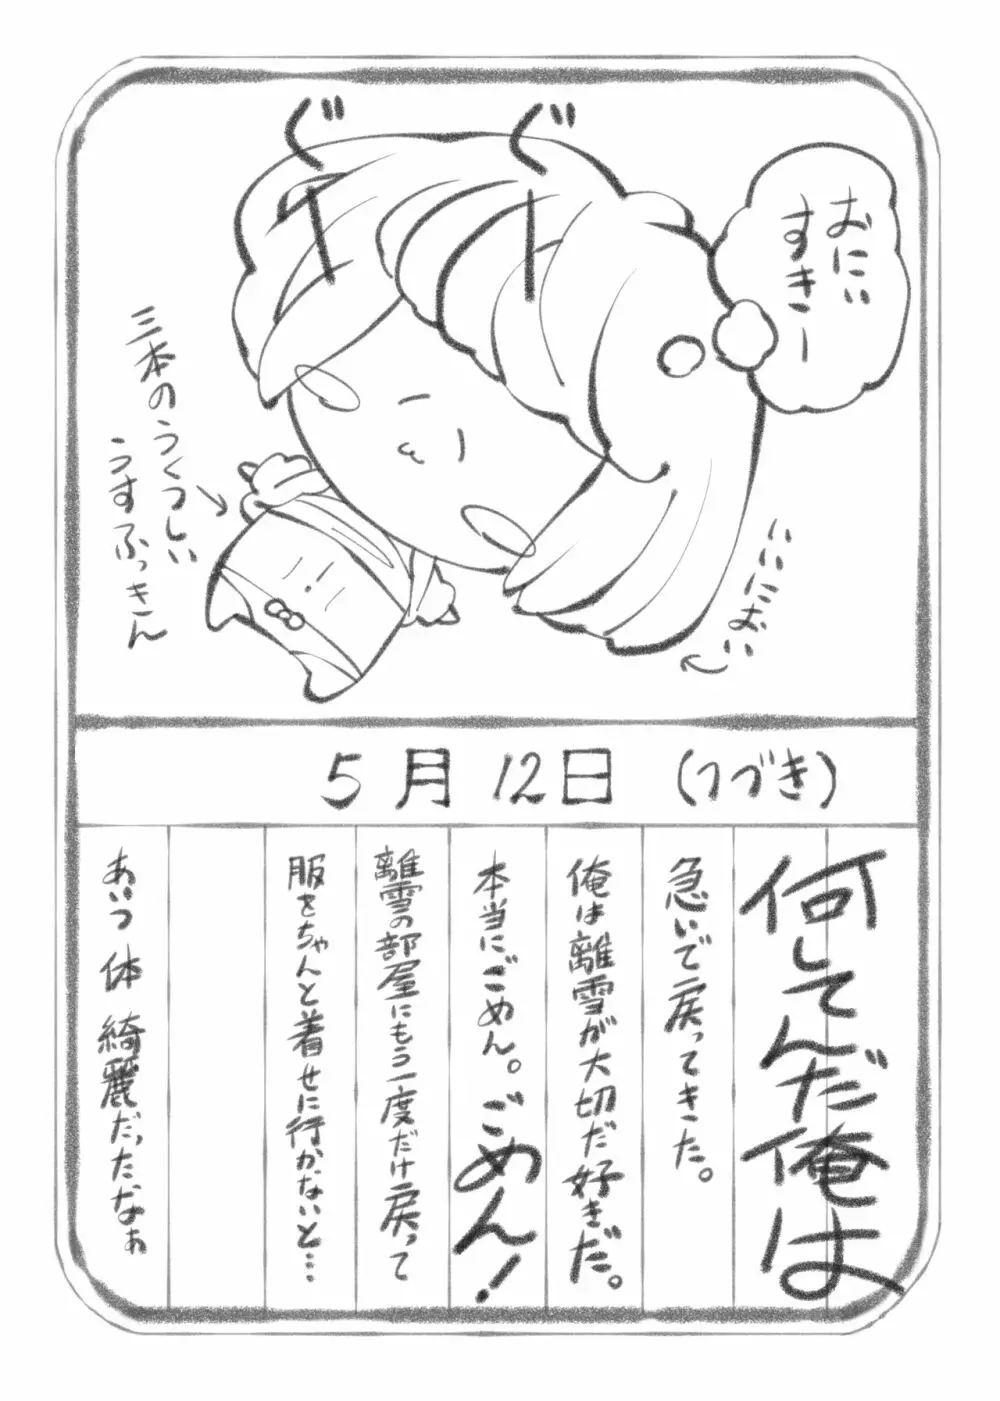 ぐー
ぐー
おにぃ
すきー
三本のうくつしい
うすふっきん
いいにおい
5月12日（つづき）
何してんだ俺は
急いで戻ってきた。
俺は離雪が大切だ好きだ。
本当にごめん。ごめん！
離雪の部屋にもう一度だけ戻って
服をちゃんと着せに行かないと…
あいつ 体 綺麗だったなぁ